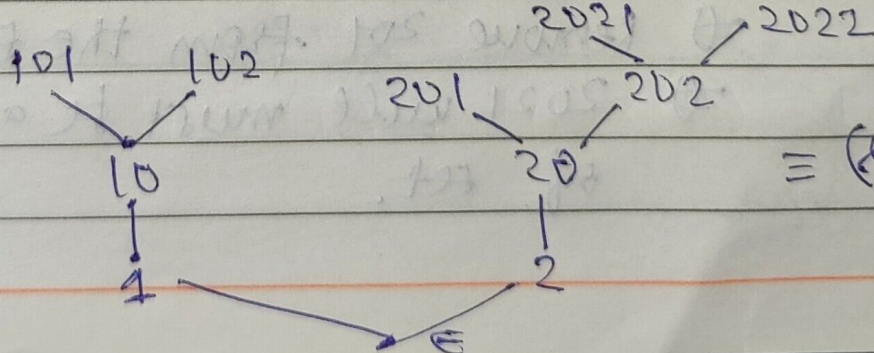 2021 2022
101 102 201 202
10 20 ≡ (
1 2
ϵ